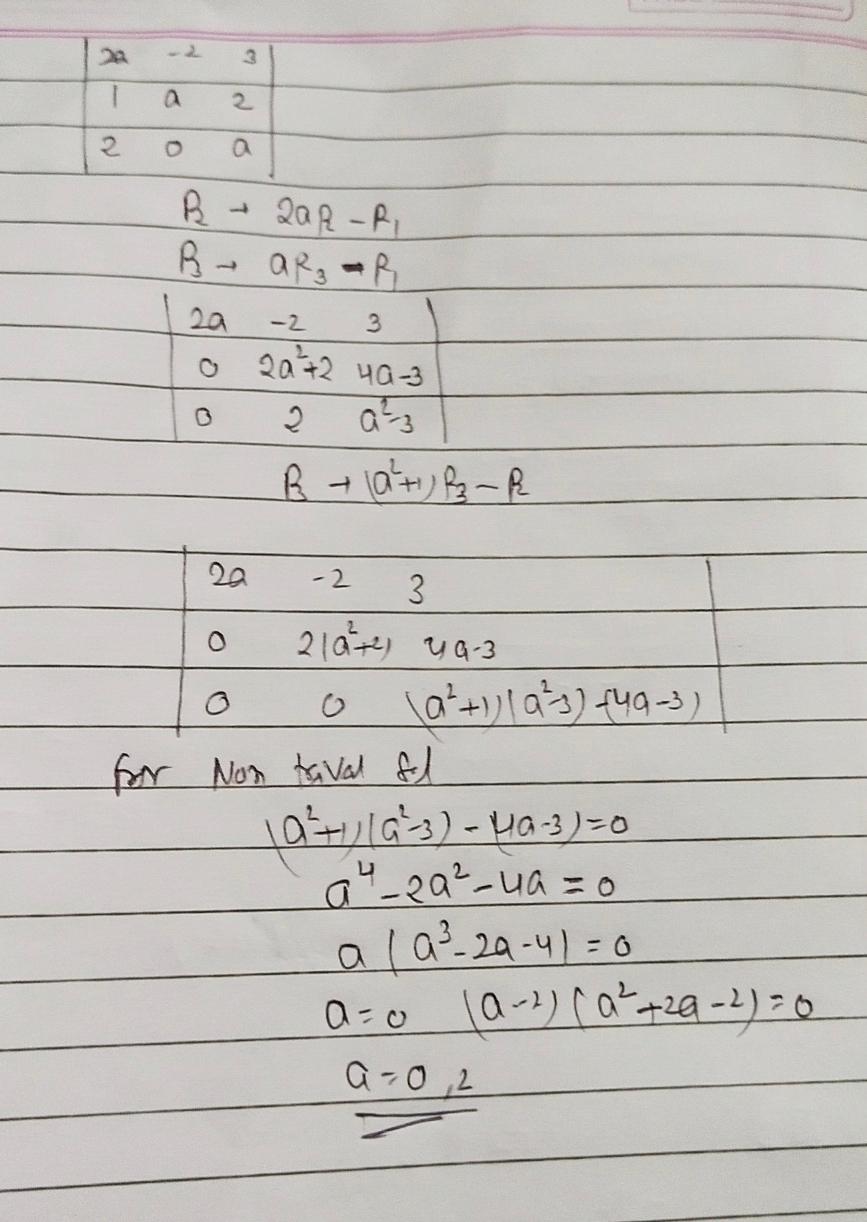 | 2a -2 3 |
| 1 a 2 |
| 2 0 a |
R₂ → 2aR₂ - R₁
R₃ → aR₃ - R₁
| 2a -2 3 |
| 0 2a²+2 4a-3 |
| 0 2 a²-3 |
R₃ → (a²+1) R₃ - R₂
| 2a -2 3 |
| 0 2(a²+1) 4a-3 |
| 0 0 (a²+1)(a²-3) -(4a-3) |
for Non trival Sol
(a²+1)(a²-3) - (4a-3) = 0
a⁴ - 2a² - 4a = 0
a (a³ - 2a - 4) = 0
a = 0 (a-2) (a² + 2a - 2) = 0
a = 0, 2